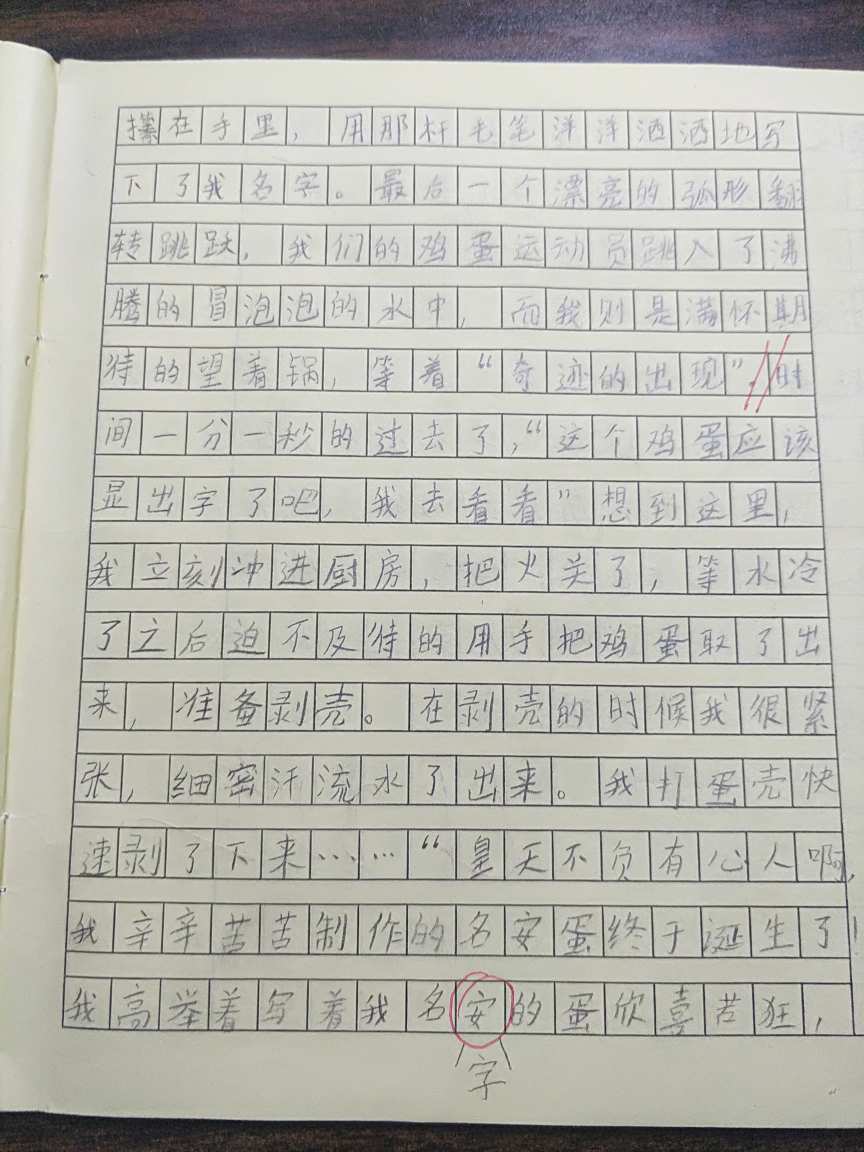 攥在手里，用那杆毛笔洋洋洒洒地写
下了我名字。最后一个漂亮的弧形翻
转跳跃，我们的鸡蛋运动员跳入了沸
腾的冒泡泡的水中，而我则是满怀期
待的望着锅，等着“奇迹的出现”。//时
间一分一秒的过去了，“这个鸡蛋应该
显出字了吧，我去看看”想到这里，
我立刻冲进厨房，把火关了，等水冷
了之后迫不及待的用手把鸡蛋取了出
来，准备剥壳。在剥壳的时候我很紧
张，细密汗流水了出来。我打蛋壳快
速剥了下来……“皇天不负有心人啊，
我辛辛苦苦制作的名安蛋终于诞生了！
我高举着写着我名安的蛋欣喜若狂，
字